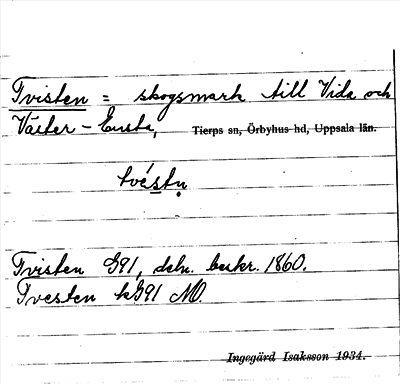 Tvisten = skogsmark till Vida och
Väster-Ensta, Tierps sn, Örbyhus hd, Uppsala län.
tvéstn̥
Tvisten G91, deln. beskr. 1860.
Tvesten kG91 MO.
Ingegärd Isaksson 1934.